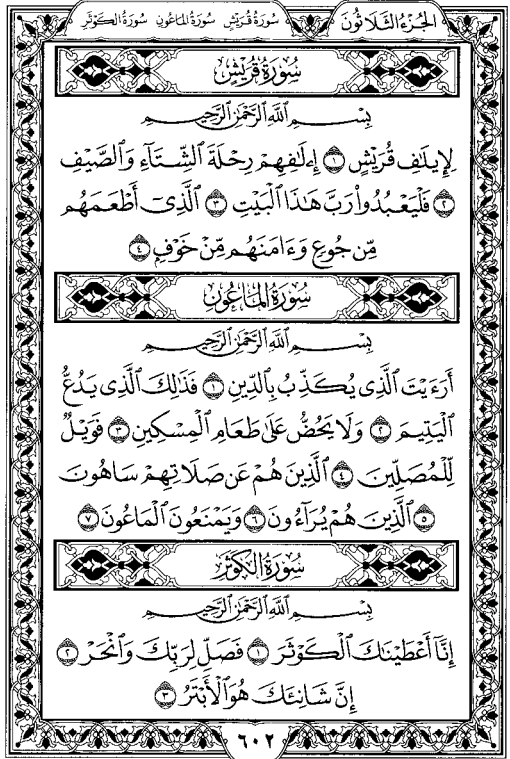 الجُزءُ الثَّلَاثُونَ سُورَةُ قُرَيْشٍ سُورَةُ المَاعُونِ سُورَةُ الكَوْثَرِ
سُورَةُ قُرَيْشٍ
بِسْمِ ٱللَّهِ ٱلرَّحْمَٰنِ ٱلرَّحِيمِ
لِإِيلَٰفِ قُرَيْشٍ ١ إِۦلَٰفِهِمْ رِحْلَةَ ٱلشِّتَآءِ وَٱلصَّيْفِ
٢ فَلْيَعْبُدُوا۟ رَبَّ هَٰذَا ٱلْبَيْتِ ٣ ٱلَّذِىٓ أَطْعَمَهُم
مِّن جُوعٍ وَءَامَنَهُم مِّنْ خَوْفٍ ٤
سُورَةُ المَاعُونِ
بِسْمِ ٱللَّهِ ٱلرَّحْمَٰنِ ٱلرَّحِيمِ
أَرَءَيْتَ ٱلَّذِى يُكَذِّبُ بِٱلدِّينِ ١ فَذَٰلِكَ ٱلَّذِى يَدُعُّ
ٱلْيَتِيمَ ٢ وَلَا يَحُضُّ عَلَىٰ طَعَامِ ٱلْمِسْكِينِ ٣ فَوَيْلٌ
لِّلْمُصَلِّينَ ٤ ٱلَّذِينَ هُمْ عَن صَلَاتِهِمْ سَاهُونَ
٥ ٱلَّذِينَ هُمْ يُرَآءُونَ ٦ وَيَمْنَعُونَ ٱلْمَاعُونَ ٧
سُورَةُ الكَوْثَرِ
بِسْمِ ٱللَّهِ ٱلرَّحْمَٰنِ ٱلرَّحِيمِ
إِنَّآ أَعْطَيْنَٰكَ ٱلْكَوْثَرَ ١ فَصَلِّ لِرَبِّكَ وَٱنْحَرْ ٢
إِنَّ شَانِئَكَ هُوَ ٱلْأَبْتَرُ ٣
٦٠٢